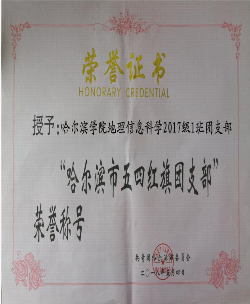 荣誉证书
HONORARY CREDENTIAL
授予:哈尔滨学院地理信息科学2017级1班团支部
“哈尔滨市五四红旗团支部”
荣誉称号